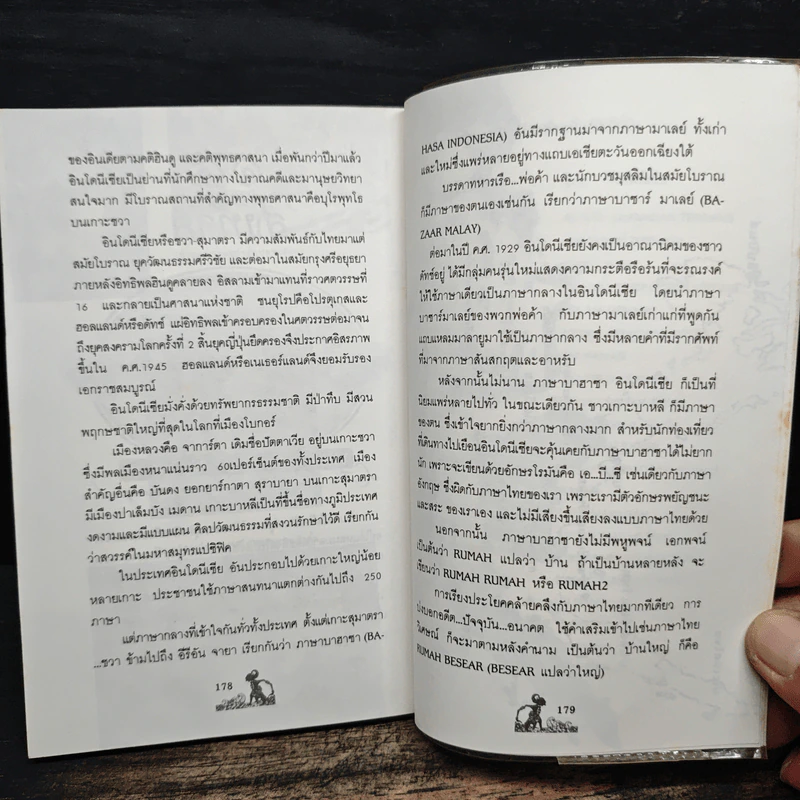 ของอินเดียตามคติฮินดู และคติพุทธศาสนา เมื่อพันกว่าปีมาแล้ว
อินโดนีเซียเป็นย่านที่นักศึกษาทางโบราณคดีและมานุษยวิทยา
สนใจมาก มีโบราณสถานที่สำคัญทางพุทธศาสนาคือบุโรพุทโธ
บนเกาะชวา
อินโดนีเซียหรือชวา-สุมาตรา มีความสัมพันธ์กับไทยมาแต่
สมัยโบราณ ยุควัฒนธรรมศรีวิชัย และต่อมาในสมัยกรุงศรีอยุธยา
ภายหลังอิทธิพลฮินดูคลายลง อิสลามเข้ามาแทนที่ราวศตวรรษที่
16 และกลายเป็นศาสนาแห่งชาติ ชนยุโรปคือโปรตุเกสและ
ฮอลแลนด์หรือดัทช์ แผ่อิทธิพลเข้าครอบครองในศตวรรษต่อมาจน
ถึงยุคสงครามโลกครั้งที่ 2 สิ้นยุคญี่ปุ่นยึดครองจึงประกาศอิสรภาพ
ขึ้นใน ค.ศ.1945 ฮอลแลนด์หรือเนเธอร์แลนด์จึงยอมรับรอง
เอกราชสมบูรณ์
อินโดนีเซียมั่งคั่งด้วยทรัพยากรธรรมชาติ มีป่าทึบ มีสวน
พฤกษชาติใหญ่ที่สุดในโลกที่เมืองโบกอร์
เมืองหลวงคือ จาการ์ตา เดิมชื่อปัตตาเวีย อยู่บนเกาะชวา
ซึ่งมีพลเมืองหนาแน่นราว 60เปอร์เซ็นต์ของทั้งประเทศ เมือง
สำคัญอื่นคือ บันดง ยอกยาร์กาตา สุราบายา บนเกาะสุมาตรา
มีเมืองปาเล็มบัง เมดาน เกาะบาหลีเป็นที่ขึ้นชื่อทางภูมิประเทศ
งดงามและมีแบบแผน ศิลปวัฒนธรรมที่สงวนรักษาไว้ดี เรียกกัน
ว่าสวรรค์ในมหาสมุทรแปซิฟิค
ในประเทศอินโดนีเซีย อันประกอบไปด้วยเกาะใหญ่น้อย
หลายเกาะ ประชาชนใช้ภาษาสนทนาแตกต่างกันไปถึง 250
ภาษา
แต่ภาษากลางที่เข้าใจกันทั่วทั้งประเทศ ตั้งแต่เกาะสุมาตรา
...ชวา ข้ามไปถึง อีรีอัน จายา เรียกกันว่า ภาษาบาฮาซา (BA-
178
HASA INDONESIA) อันมีรากฐานมาจากภาษามาเลย์ ทั้งเก่า
และใหม่ซึ่งแพร่หลายอยู่ทางแถบเอเชียตะวันออกเฉียงใต้
บรรดาทหารเรือ...พ่อค้า และนักบวชมุสลิมในสมัยโบราณ
ก็มีภาษาของตนเองเช่นกัน เรียกว่าภาษาบาซาร์ มาเลย์ (BA-
ZAAR MALAY)
ต่อมาในปี ค.ศ. 1929 อินโดนีเซียยังคงเป็นอาณานิคมของชาว
ดัทช์อยู่ ได้มีกลุ่มคนรุ่นใหม่แสดงความกระตือรือร้นที่จะรณรงค์
ให้ใช้ภาษาเดียวเป็นภาษากลางในอินโดนีเซีย โดยนำภาษา
บาซาร์มาเลย์ของพวกพ่อค้า กับภาษามาเลย์เก่าแก่ที่พูดกัน
แถบแหลมมาลายูมาใช้เป็นภาษากลาง ซึ่งมีหลายคำที่มีรากศัพท์
ที่มาจากภาษาสันสกฤตและอาหรับ
หลังจากนั้นไม่นาน ภาษาบาฮาซา อินโดนีเซีย ก็เป็นที่
นิยมแพร่หลายไปทั่ว ในขณะเดียวกัน ชาวเกาะบาหลี ก็มีภาษา
ของตน ซึ่งเข้าใจยากยิ่งกว่าภาษากลางมาก สำหรับนักท่องเที่ยว
ที่เดินทางไปเยือนอินโดนีเซียจะคุ้นเคยกับภาษาบาฮาซาได้ไม่ยาก
นัก เพราะจะเขียนด้วยอักษรโรมันคือ เอ...บี...ซี เช่นเดียวกับภาษา
อังกฤษ ซึ่งผิดกับภาษาไทยของเรา เพราะเรามีตัวอักษรพยัญชนะ
และสระ ของเราเอง และไม่มีเสียงขึ้นเสียงลงแบบภาษาไทยด้วย
นอกจากนั้น ภาษาบาฮาซายังไม่มีพหูพจน์ เอกพจน์
เป็นต้นว่า RUMAH แปลว่า บ้าน ถ้าเป็นบ้านหลายหลัง จะ
เขียนว่า RUMAH RUMAH หรือ RUMAH2
การเรียงประโยคคล้ายคลึงกับภาษาไทยมากทีเดียว การ
บ่งบอกอดีต...ปัจจุบัน...อนาคต ใช้คำเสริมเข้าไปเช่นภาษาไทย
วิเศษณ์ ก็จะมาตามหลังคำนาม เป็นต้นว่า บ้านใหญ่ ก็คือ
RUMAH BESEAR (BESEAR แปลว่าใหญ่)
179